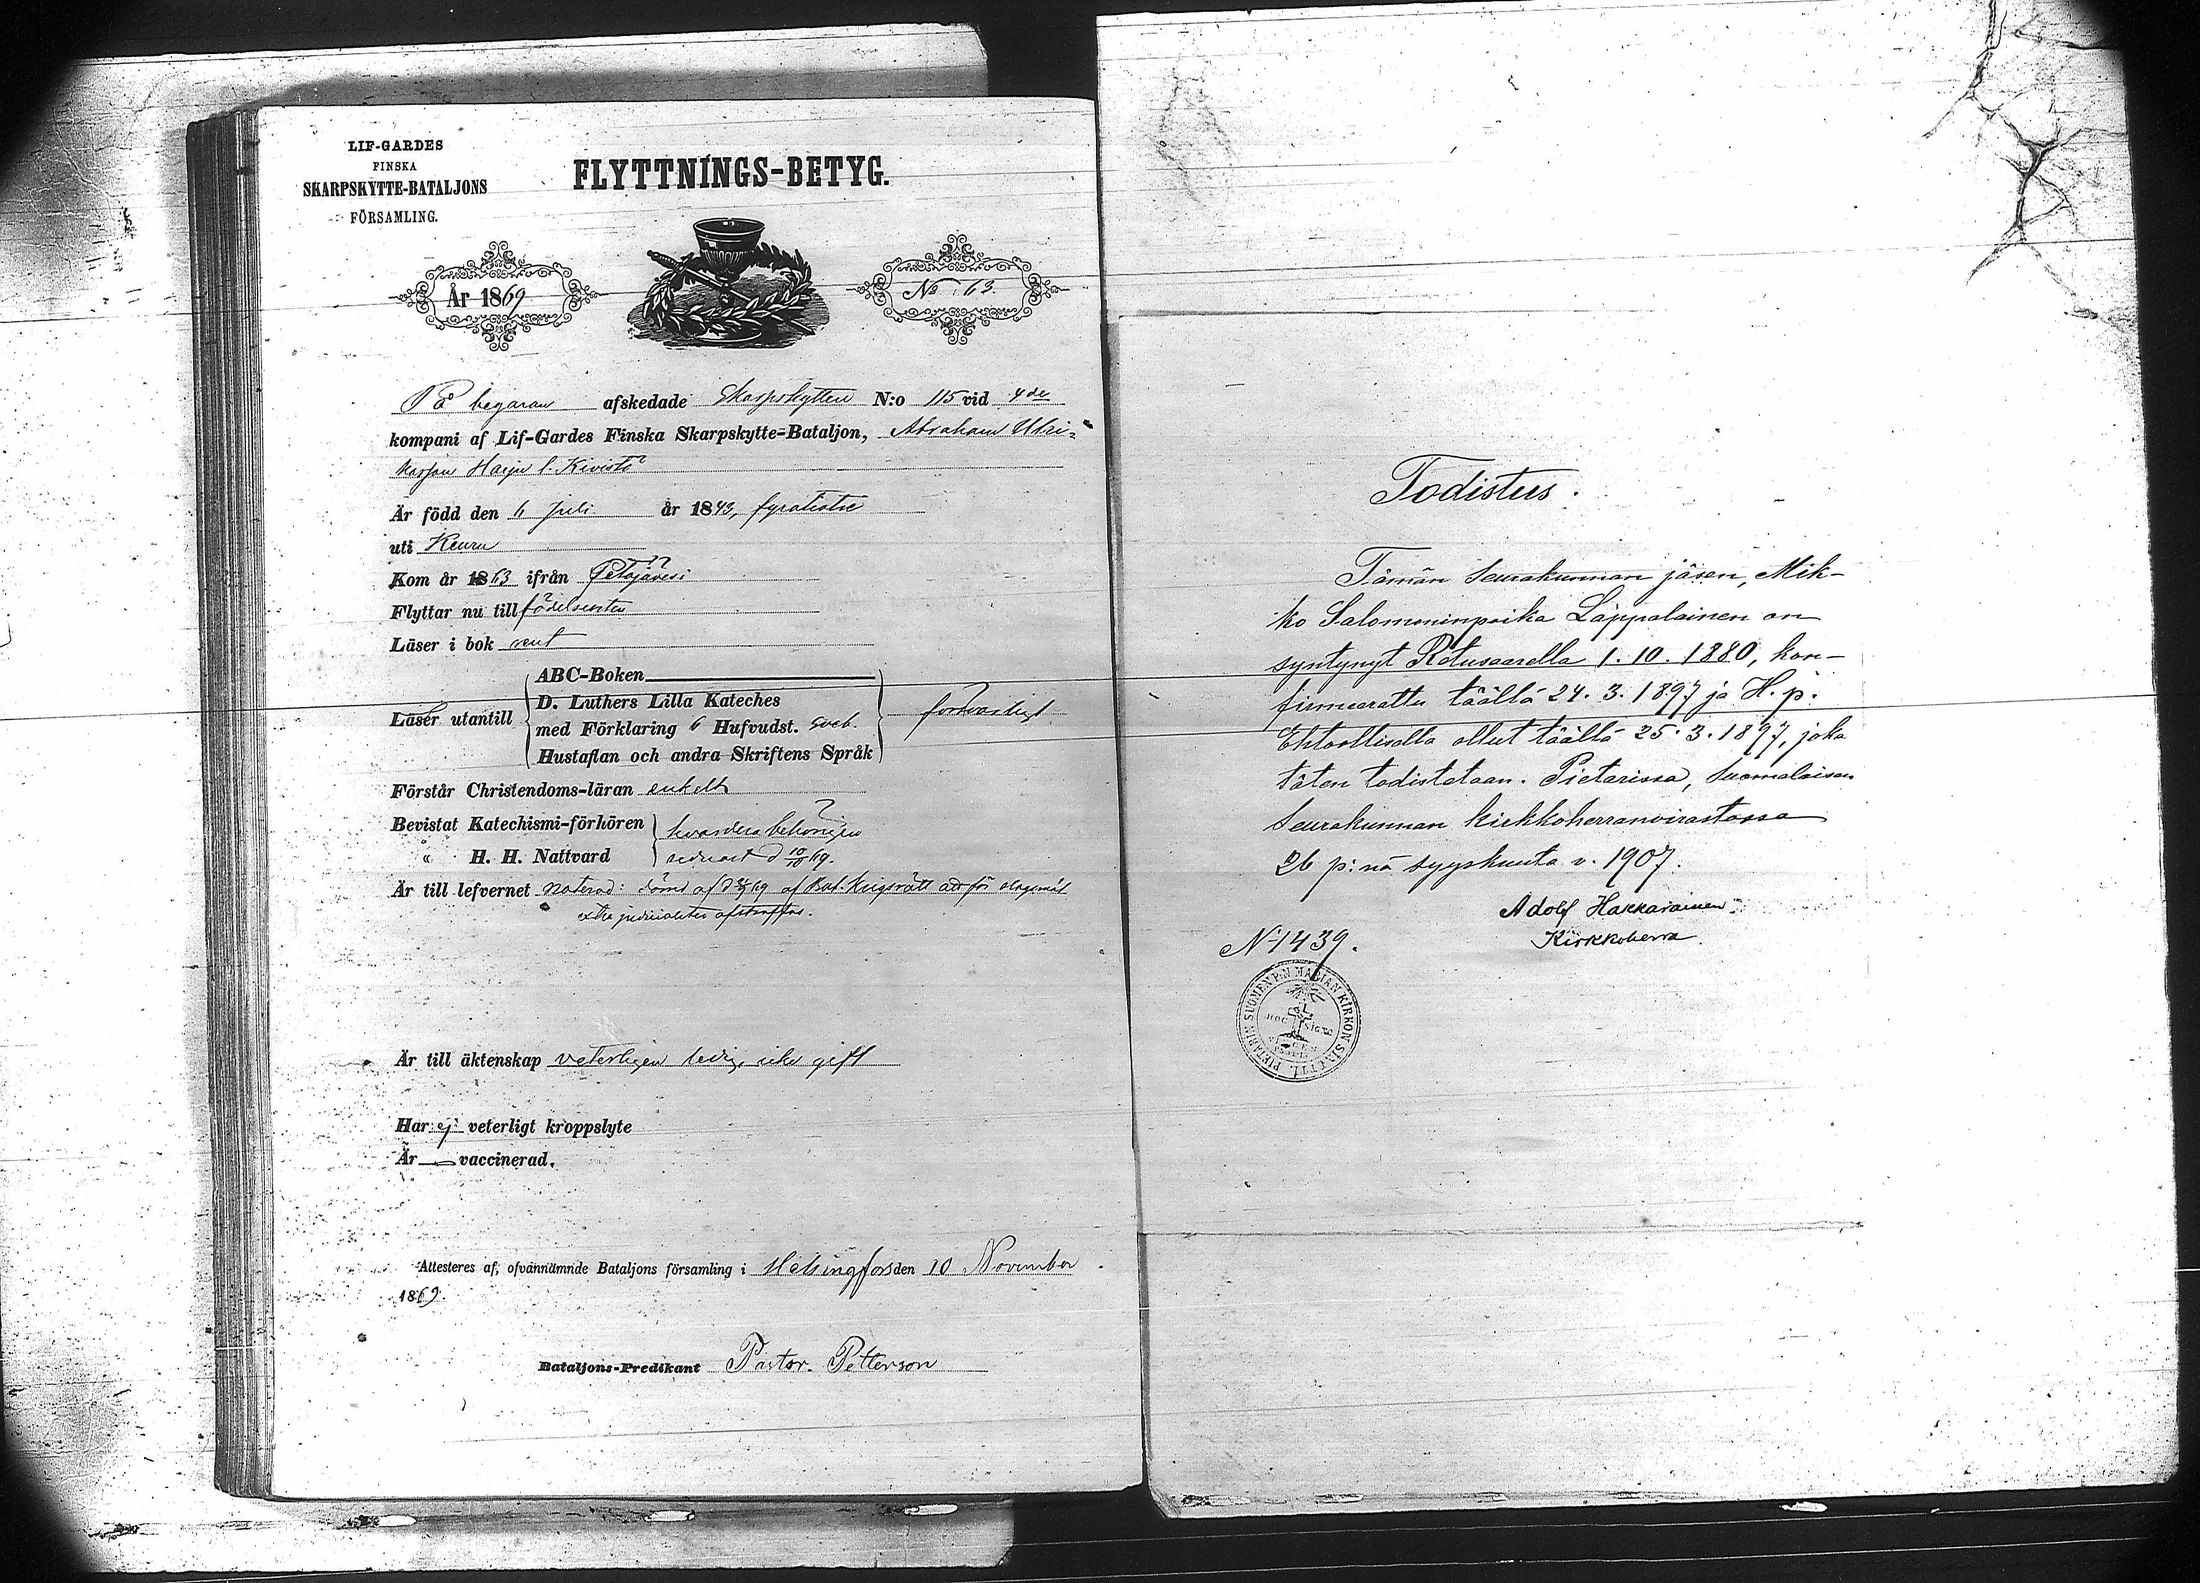 LIF-GARDES
FINSKA
SKARPSKYTTE-BATALJONS
FÖRSAMLING.
FLYTTNINGS-BETYG.
År 1869
No 63.
På begäran afskedade Skarpskytten N:o 115 vid 4de
kompani af Lif-Gardes Finska Skarpskytte-Bataljon, Abraham Ulri-
kasson Harju l. Kivistö
Är född den 6 Juli år 1843, fyratiotre
uti Keuru
Kom år 1863 ifrån Petäjävesi
Flyttar nu till födelseorten
Läser i bok rent
Läser utantill
ABC-Boken
D. Luthers Lilla Kateches
med Förklaring 6 Hufvudst. Sveb.
Hustaflan och andra Skriftens Språk
försvarligt
Förstår Christendoms-läran enkelt
Bevistat Katechismi-förhören
hvardera behörigen
" H. H. Nattvard
senast d 10/10 69.
Är till lefvernet noterad: dömd af af Bat. Krigsrätt att för olagmäl
extra judicialiter afstraffas.
Är till äktenskap veterligen ledig, icke gift
Har ej veterligt kroppslyte
Är vaccinerad.
Attesteres af, ofvannämnde Bataljons församling i Helsingfors den 10 November
1869.
Bataljons-Predikant Pastor. Petterson
Todistus.
Tämän Seurakunnan jäsen, Mik-
ko Salomoninpoika Läppalainen on
syntynyt Retusaarella 1. 10. 1880, kon-
firmeerattu täällä 24. 3. 1897 ja H. p.
Ehtoollisella ollut täällä 25. 3. 1897, joka
täten todistetaan. Pietarissa, Suomalaisen
Seurakunnan kirkkoherranvirastossa
26 p:nä syyskuuta v. 1907.
Adolf Hakkarainen
Kirkkoherra.
N 1439.
PIETARIN SUOMENEN MARIAN KIRKON SINETTI.
HOC SIGNO